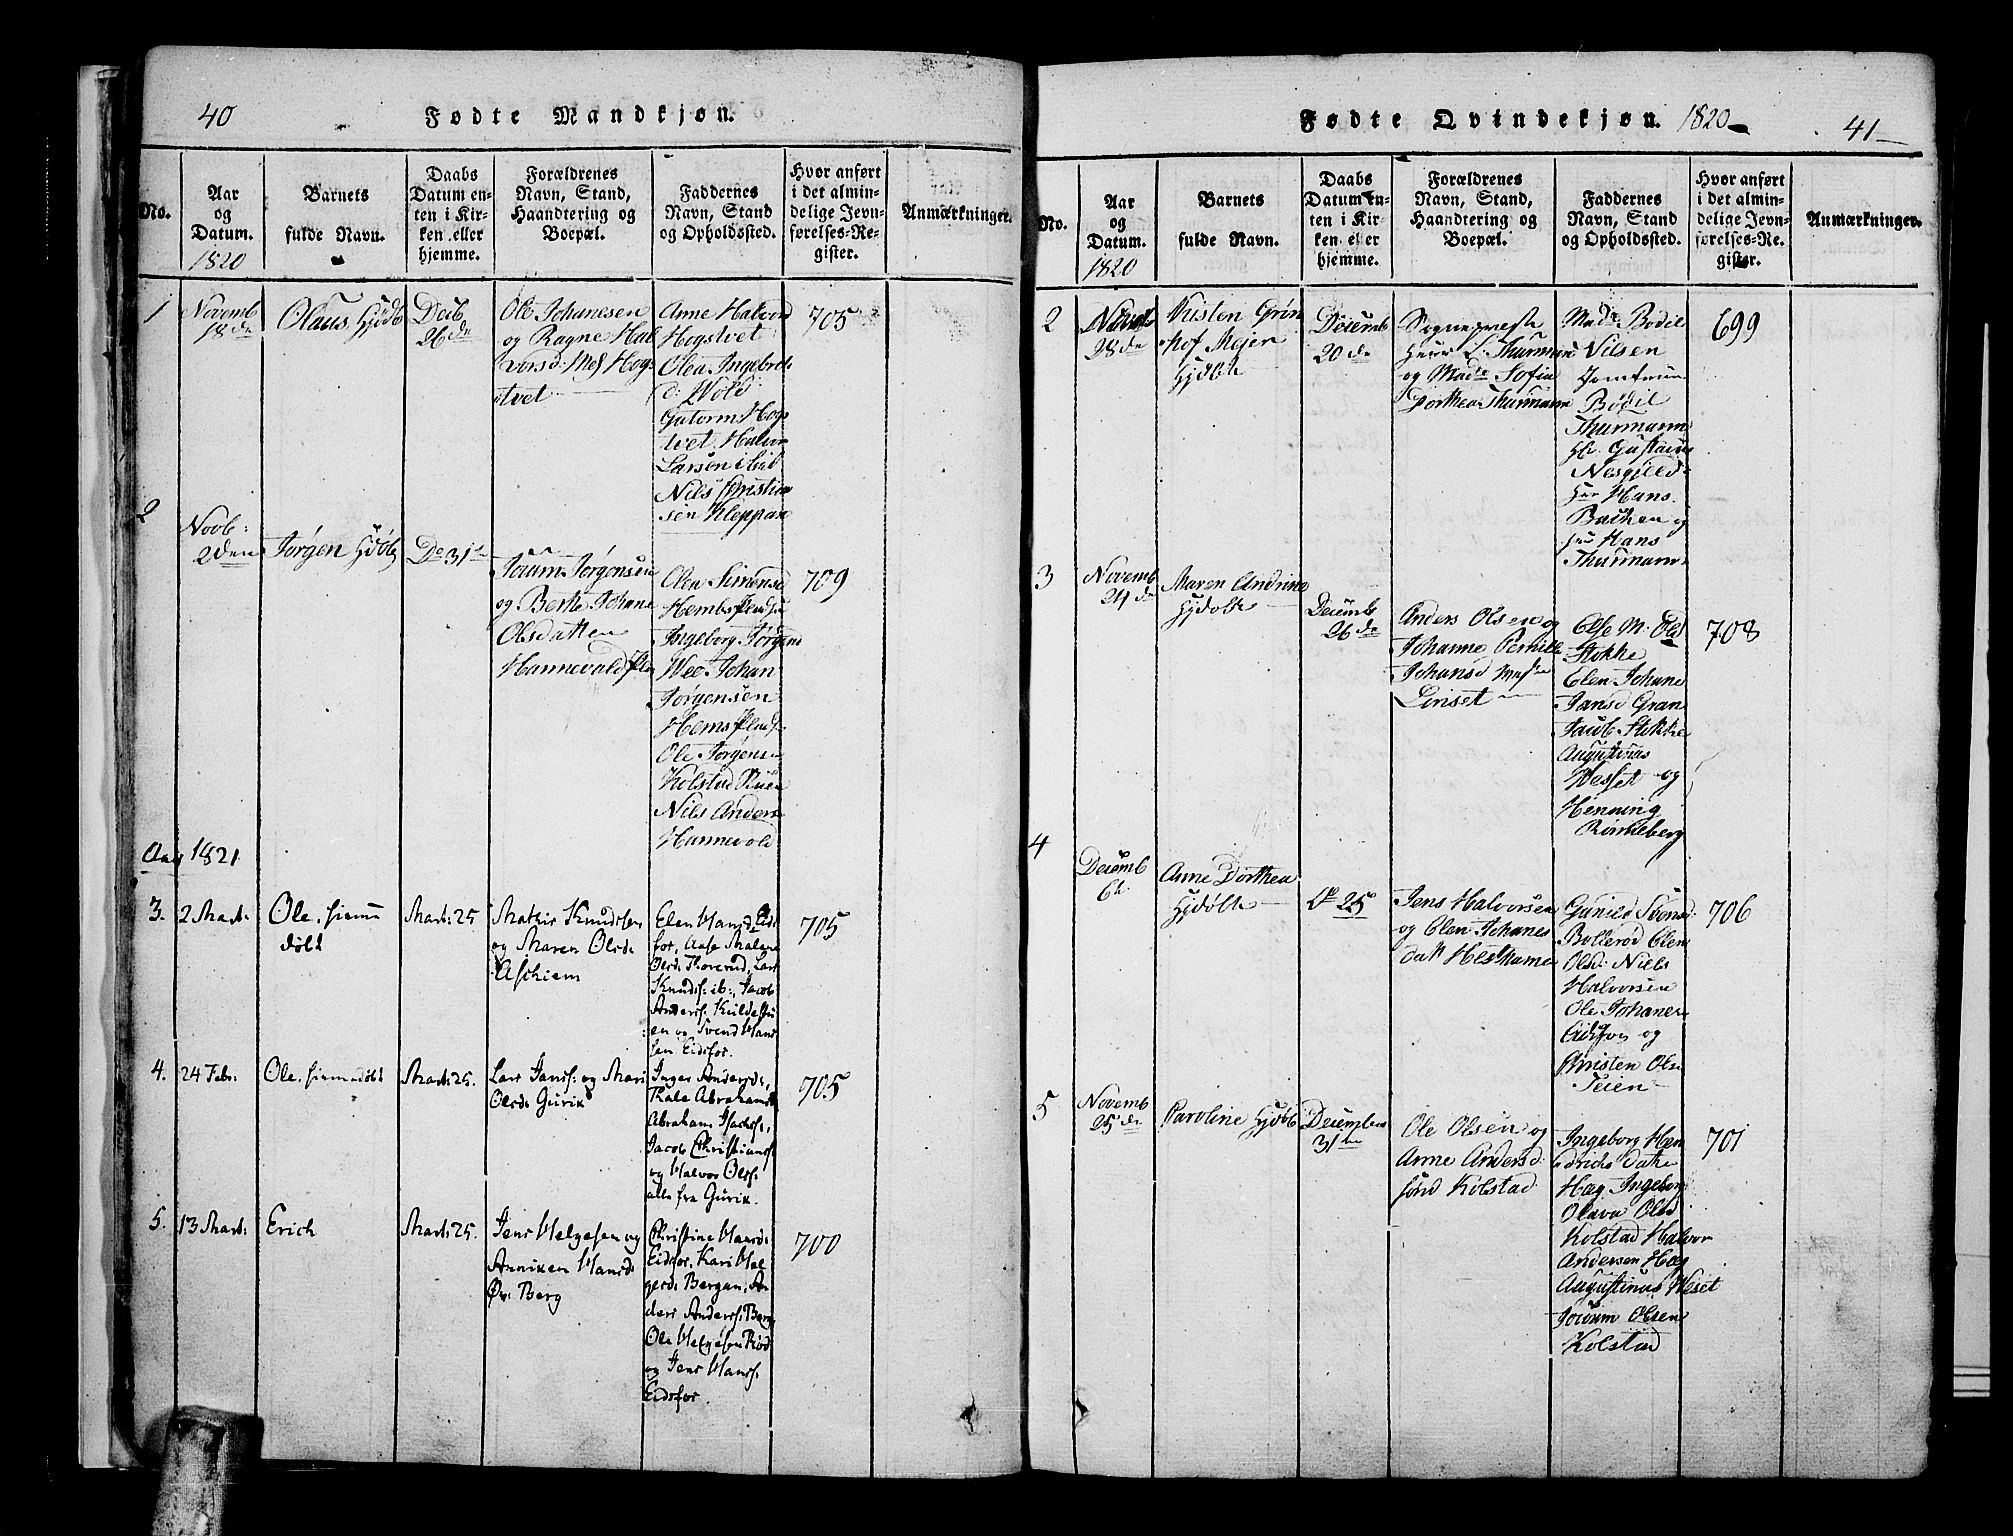 40
Fødte Mandkjøn.
No.
Aar
og
Datum.
1820
Barnets
fulde Navn.
Daabs
Datum en-
ten i Kir-
ken eller
hjemme.
Forældrenes
Navn, Stand,
Haandtering og
Boepæl.
Faddernes
Navn, Stand
og Opholdssted.
Hvor anført
i det almin-
delige Jevn-
førelses-Re-
gister.
Anmærkninger.
1
Novemb
18de
Olaus
Decb
26de
Ole Johanesen
og Ragne Hal
vorsd: Hog
tvet
Anne Halvord
Hogstvet
Olea Ingebret
d: Wold
Gutorm Hog
tvet Halvor
Larsen
Nils Christian
sen Kleppan
705
2
Novb:
2den
Jørgen
De 31te
Jørgensen
og Berte Johane
Olsdatter
Hannevold
Olea Simensd
Ingeborg Jørgens
Wee Johan
Jørgensen
Ole Jørgens
Kolstad
Nils Anders
Hannevold
709
Aar 1821
3.
2 Mart:
Ole
døbt
Mart: 25
Mathis Knudsen
og Maren Olsd:
Aschiem
Elen Hansd: Eids
fos, Aase Malene
Olsd: Thorerud, Lars
Knuds: ib:, Jacob
Anders:
en og Svend Hans
sen Eidsfos.
705
4.
24 Febr:
Ole
Mart: 25.
Lars Jans: og Mari
Olsd: Gurix
Inger Andersd:,
Kale Abrahamsd:
Abraham Isachs:,
Jacob Christians:
og Halvor Ols:
alle fra Gurix.
705
5.
13 Mart:
Erich
Mart: 25.
Jens Helgesen og
Anniken Hansd:
Øv: Berg
Christine Hansd:
Eidsfos, Kari Hel
gesd: Bergan, An
ders Anders: Berg
Ole Helgesen Rød
og Jens Hans:
Eidsfos.
700
Fødte Qvindekjøn. 1820
41
No.
Aar
og
Datum.
1820
Barnets
fulde Navn.
Daabs
Datum en-
ten i Kir-
ken eller
hjemme.
Forældrenes
Navn, Stand,
Haandtering og
Boepæl.
Faddernes
Navn, Stand
og Opholdssted.
Hvor anført
i det almin-
delige Jevn-
førelses-Re-
gister.
Anmærkninger.
2
28de
Meier
Decemb
20de
Sognepræst
Herr L: Thurmann
og Made Sofia
Dorthea Thurmann
Made Bodil
Nilsen
Jomfrue
Bodil
Thurmann
Hr. Gustavus
Herr Hans
Backen og
Herr Hans
Thurmann
699
3
Novemb
24de
Maren Andrine
Decemb
26de
Anders Olsen og
Johanne Pernille
Johansd
Linset
Else M. Ols
Stokke
Elen Johane
Jansd Gran
Jacob Stokke
Augustinus
Wesset og
Henning
Rønneberg
708
4
Decemb
6te
Anne Dorthea
De 25
Jens Halvorsen
og Elen Johanes
dat Hestkame
Gunild Svensd:
Bollerød Elen
Olsd: Niels
Halvorsen
Ole Johanes
Eidsfos og
Christen Ols
Teien
706
5
Novemb
25de
Paroline
Decembr
31te
Ole Olsen og
Anne Andersd:
Kolstad
Ingeborg Hen
drichs datter
Hæg, Ingeborg
Olava Olsd
Kolstad Halvor
Andersen Hæg
Augustinus Weset
Olsen
Kolstad
701